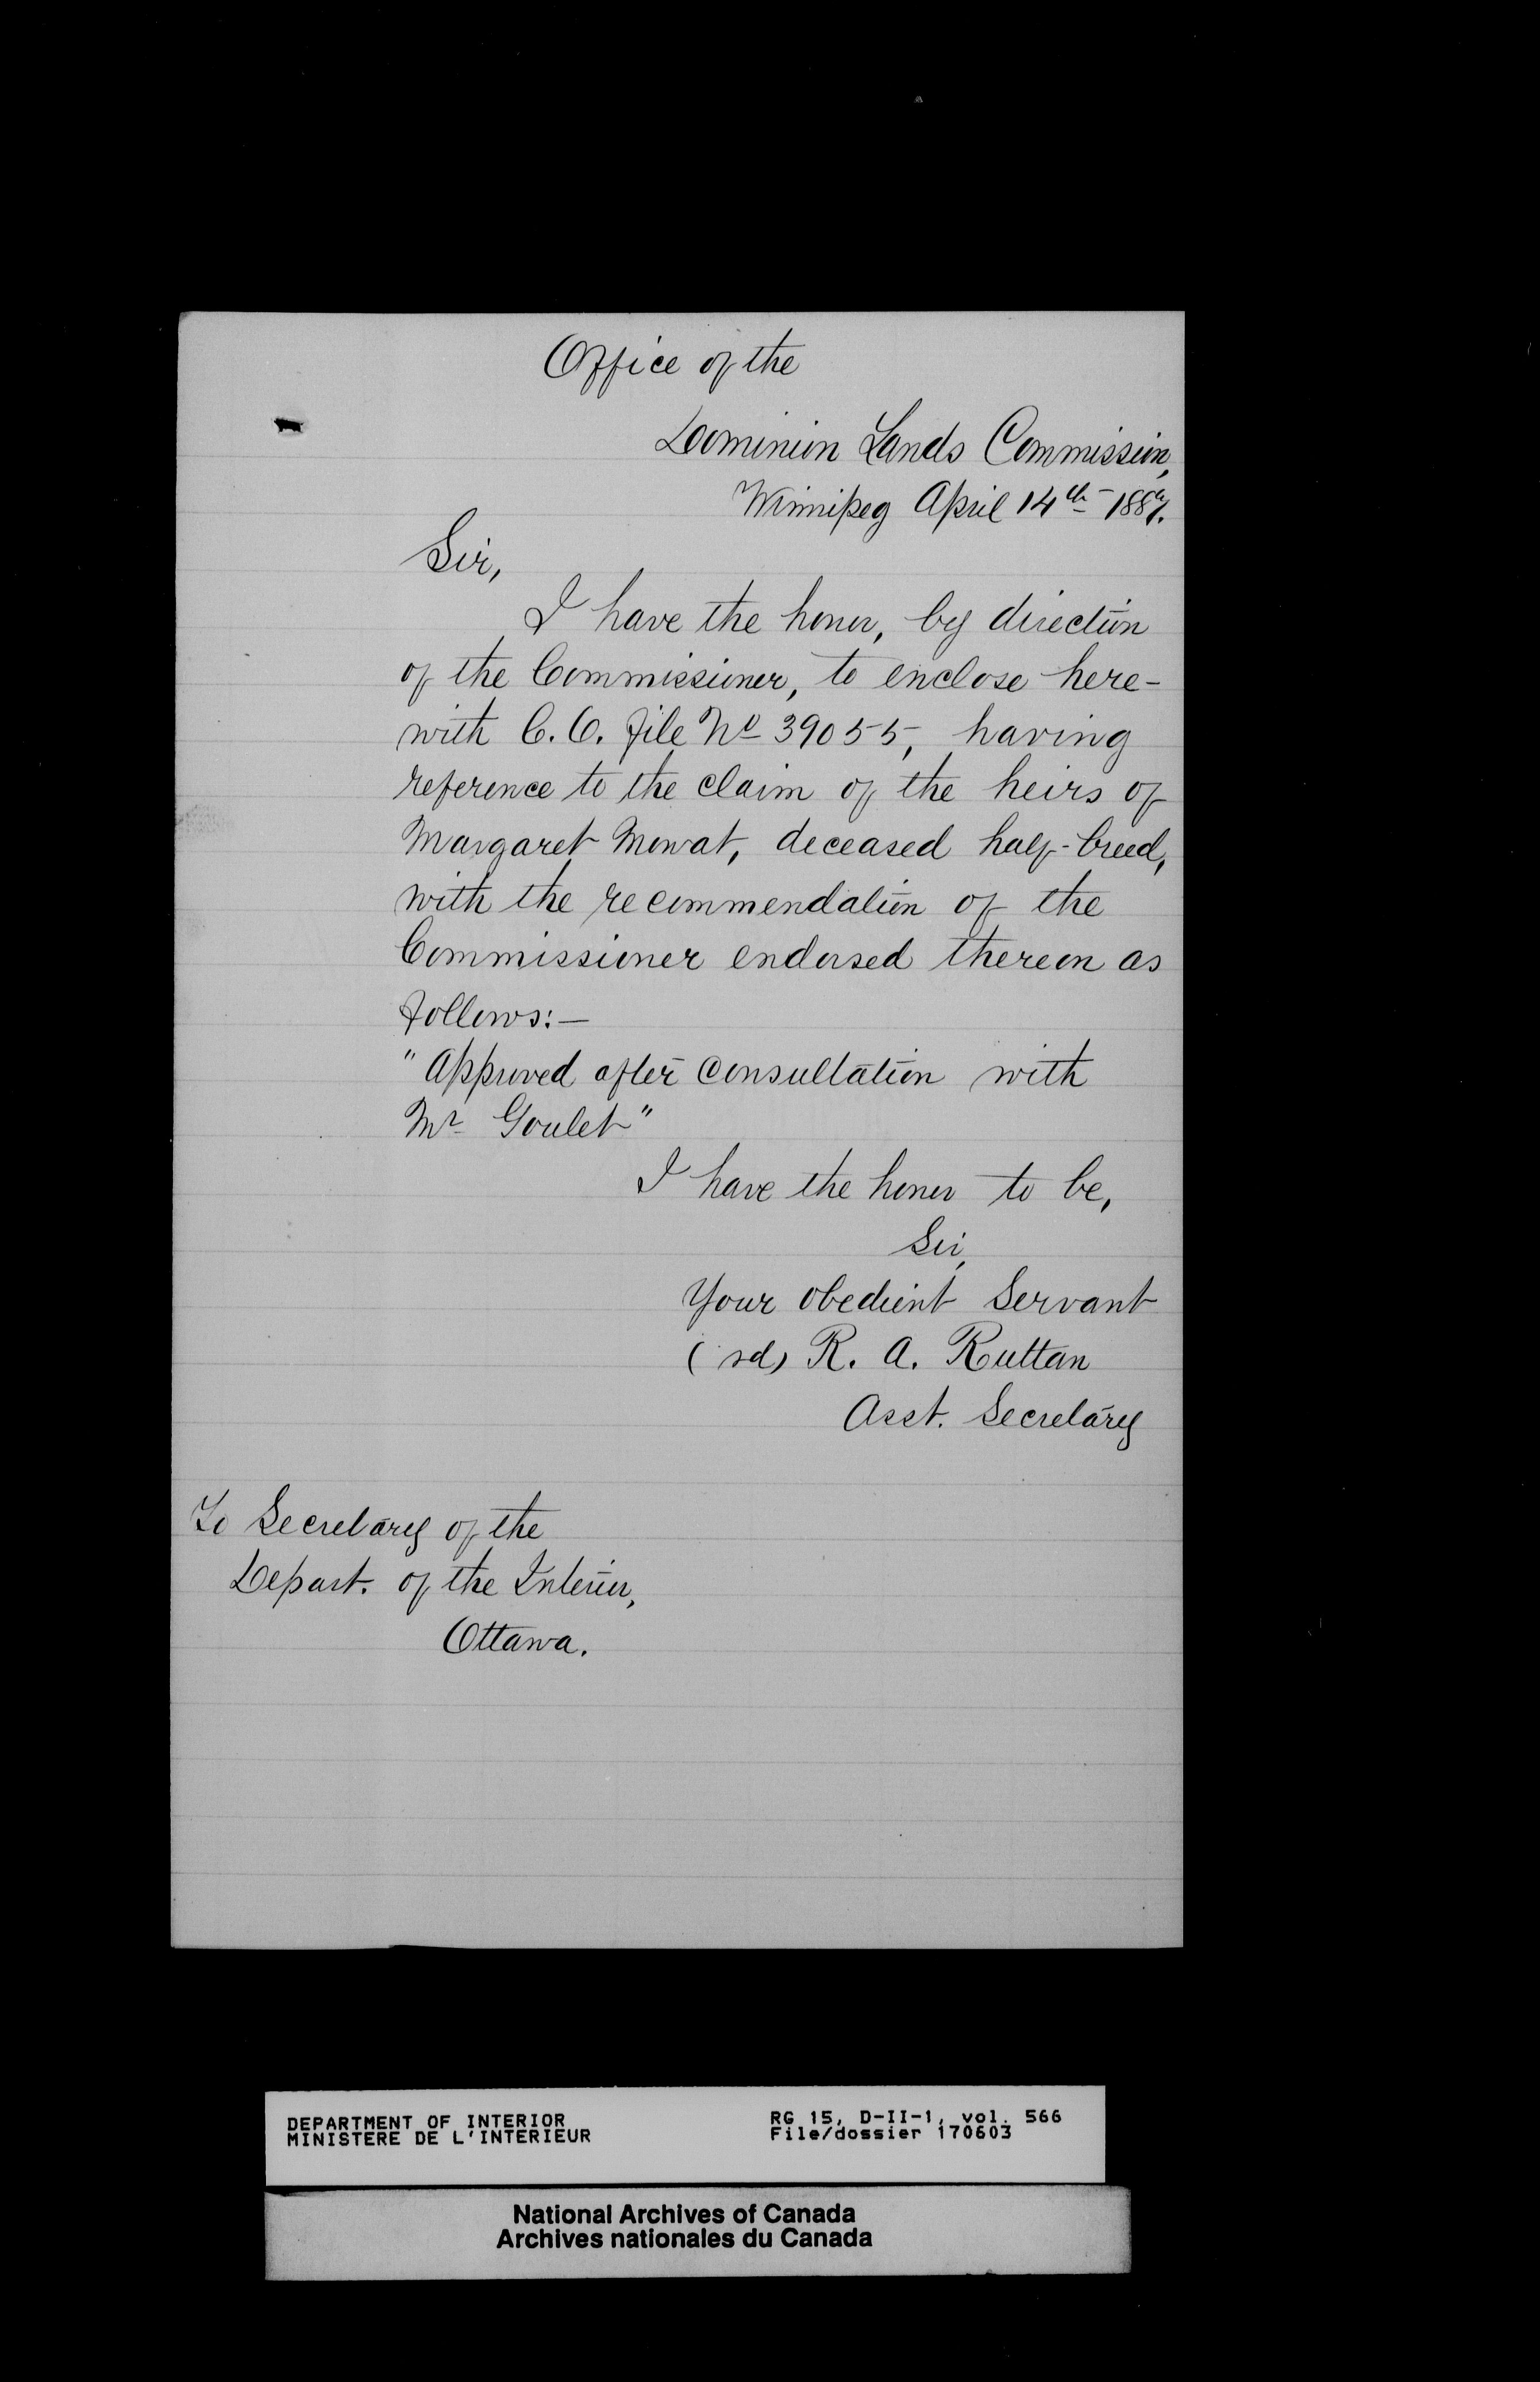 Office of the
Dominion Lands Commission,
Winnipeg April 14th 1887.
Sir,
I have the honor, by direction
of the Commissioner, to enclose here-
with C.O. file No 39055, having
reference to the claim of the heirs of
Margaret Mowat, deceased half-breed,
with the recommendation of the
Commissioner endorsed thereon as
follows:—
"Approved after consultation with
Mr Goulet"
I have the honor to be,
Sir,
Your obedient Servant
(sd) R. A. Ruttan
Asst. Secretary
To Secretary of the
Depart. of the Interior,
Ottawa.
DEPARTMENT OF INTERIOR
MINISTERE DE L'INTERIEUR
RG 15, D-II-1, vol. 566
File/dossier 170603
National Archives of Canada
Archives nationales du Canada